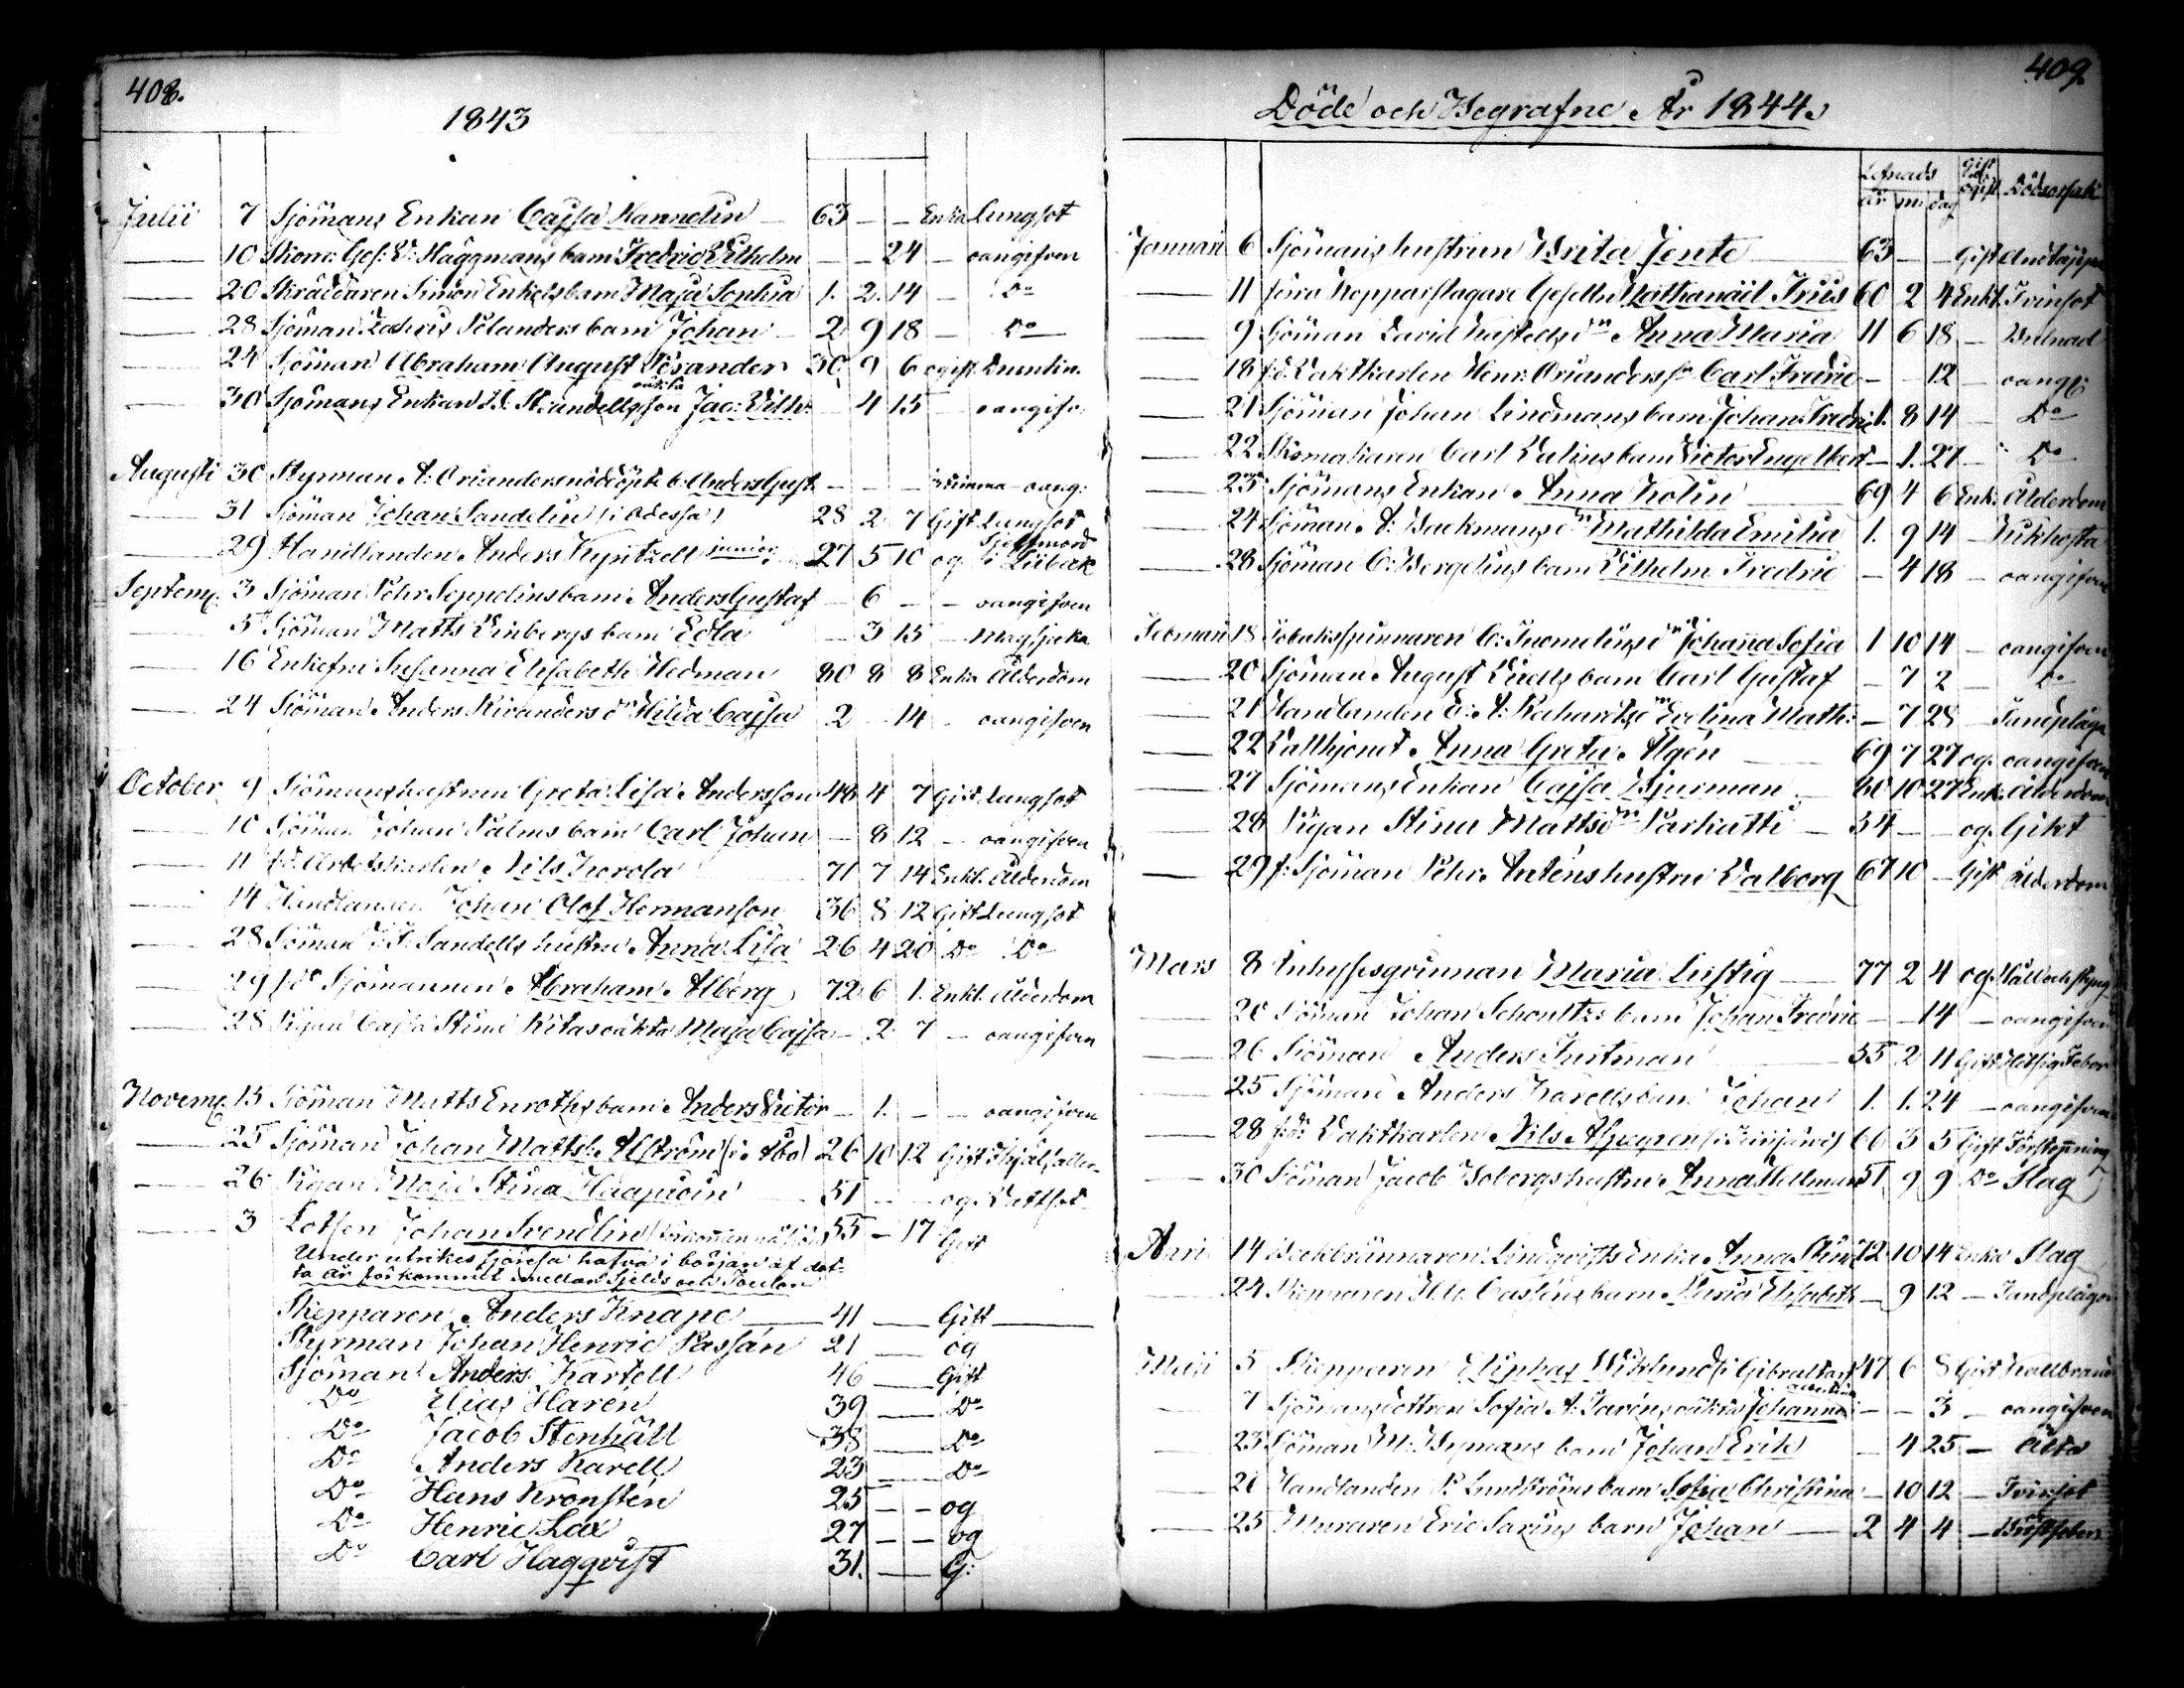 408.
1843
Julii 7 Sjömans Enkan Cajsa Hannelin — 63 — — Enka Lungsot
— 10 Skom: Ges: V: Häggmans barn Fredric Vilhelm — — 24 — oangifven
— 20 Skräddaren Simon Enkels barn Maja Sophia 1. 2. 14 — Do
— 28 Sjöman Zachris Selanders barn Johan 2 9 18 — Do
— 24 Sjöman Abraham August Veranders 30 9 6 ogift
— 30 Sjömans Enkan Strandells oäkta son Jac: Vilh: — 4 15 — oangifv:
Augusti 30 Styrman A: Orianders nöddöpt b: Anders Gust. — — — oang:
— 31 Sjöman Johan Sandelin (i Odessa) 28 2 7 Gift Lungsot
— 29 Handlanden Anders Kyntzell junior 27 5 10 og. Sjelfmord i Lübek
Septemb. 3 Sjöman Pehr Seppelins barn Anders Gustaf — 6 — — oangifven
— 5 Sjöman Matts Vinbergs barn Edla — 3 15 — Magsjuka
— 16 Enkefru Susanna Elisabeth Hedman 80 8 8 Enka Ålderdom
— 24 Sjöman Anders Kiranders dr Hilda Cajsa 2 — 14 — oangifven
October 9 Sjömanshustrun Greta Lisa Andersson 48 4 7 Gift Lungsot
— 10 Sjöman Johan Palms barn Carl Johan — 8 12 — oangifven
— 11 f.d. Arbetskarlen Nils Korola 71 7 14 Enkl. Ålderdom
— 14 Handlanden Johan Olof Hermanson 36 8 12 Gift Lungsot
— 28 Sjöman Sandells hustru Anna Lisa 26 4 20 Do Do
— 29 f.d. Sjömannen Abraham Alberg 72 6 1. Enkl. Ålderdom
— 28 Pigan Cajsa Stina Ritas oäkta Maja Cajsa — 2 7 — oangifven
Novemb. 15 Sjöman Matts Enroths barn Anders Victor — 1. — — oangifven
— 25 Sjöman Johan Mattsk. Alström (i Åbo) 26 10 12 Gift
— 26 Pigan Maja Stina Haapioin 51 — — og. Vattsot
— 3 Lotsen Johan Svendlin 55 — 17 Gift
Under utrikes sjöresa hafva i början af det-
ta år förkommit emellan och Toulon
Skepparen Anders Knape — 41 — Gift —
Styrman Johan Henric Passán 21 — og
Sjöman Anders Kartell 46 — Gift
Do Elias Harén 39 — Do
Do Jacob Stenhäll 38 — Do
Do Anders Karell 23 — Do
Do Hans Kronstén 25 — — og
Do Henric Lax 27 — — og
Do Carl Hagqvist 31. — G:
409.
Döde och Begrafne År 1844.
Lefnads år m: dag Gift el. ogift Dödsorsak
Januari 6 Sjömanshustrun Brita Jente 63 — — Gift Andtäppa
— 11 förra Kopparslagare Gesellen Nathanäel Friis 60 2 4 Enkl. Tvinsot
— 9 Sjöman David Kastells dn Anna Maria 11 6 18 —
— 18 f.d. Vaktkarlen Henr: Orianders sn Carl Fredric — — 12 — oangif:
— 21 Sjöman Johan Lindmans barn Johan Fredric 1. 8 14 — Do
— 22 Skomakaren Carl Valins barn Victor Engelbert — 1. 27 — Do
— 23 Sjömans Enkan Anna Kolin 69 4 6 Enk: Ålderdom
— 24 Sjöman A: Backmans dn Mathilda Emilia 1. 9 14 — Kikhosta
— 28 Sjöman C: Bergelins barn Vilhelm Fredric — 4 18 — oangifven
Februari 18 Tobaksspinnaren C: Tuomelins dn Johanna Sofia 1 10 14 — oangifven
— 20 Sjöman August Lidells barn Carl Gustaf — 7 2 — Do
— 21 Handlanden E: A: Rahardts dn Evelina Math: — 7 28 — Tandplåga
— 22 Valthjonet Anna Greta Algén 69 7 27 og. oangifven
— 27 Sjömans Enkan Cajsa Bjurman 80 10 27 Enk. Ålderdom
— 28 Pigan Stina Mattsdn Parkatti — 54 — — og. Gikt
— 29 f: Sjöman Pehr Anténs hustru Valborg 67 10 — Gift Ålderdom
Mars 8 Inhyses qvinnan Maria Lustig — 77 2 4 og. Håll och styng
— 20 Sjöman Johan Schoultzs barn Johan Fredric — — 14 — oangifven
— 26 Sjöman Anders Tustman 55 2 11 Gift Hitsig Feber
— 25 Sjöman Anders Karells barn Johan 1. 1. 24 — oangifven
— 28 f:d: Vaktkarlen Nils Aspegren 66 3 5 Gift Förstoppning
— 30 Sjöman Jacob Sobergs hustru Anna Hellman 51 9 9 Do Slag
April 14 Beckbrännaren Lindqvists Enka Anna Stina 72 10 14 Enka Slag
— 24 Skepparen Casténs barn Maria Elisabeth — 9 12 — Tandplågan
Maij 5 Skepparen Eliphas Wiklund (i Gibraltar) 47 6 8 Gift Kallbrand
— 7 Sjömansdottren Sofia A: Tavéns oäkta Johanna Albertina — — 3 — oangifven
— 23 Sjöman M: Nymans barn Johan Erik — 4 25 — Älta
— 21 Handlanden P: Lundströms barn Sofia Christina — 10 12 — Tvinsot
— 25 Muraren Eric Sarins barn Johan — 2 4 4 — Bröstfeber